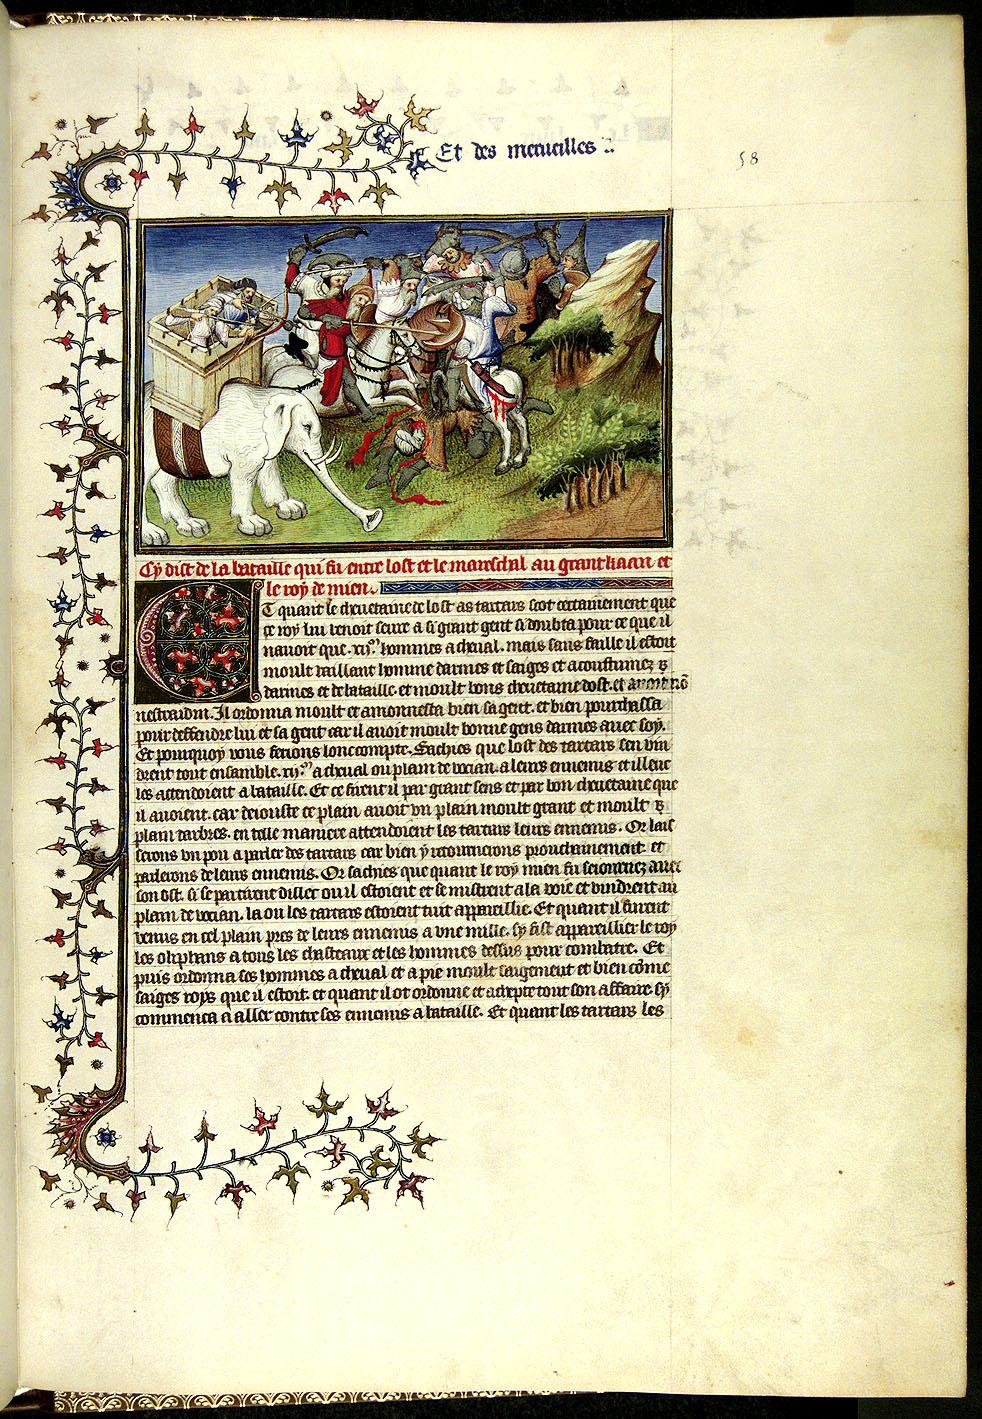 Et des merueilles
58
Cy dist de la bataille qui fu entre lost et le mareschal au grant kaan et
le roy de mien.
Et quant le cheuetaine de lost as tartars scot certainement que
ce roy lui venoit seure a si grant gent si doubta pour ce que il
nauoit que .xij.m hommes a cheual. mais sans faille il estoit
moult vaillant homme darmes et saiges et acoustumez
darmes et de bataille. et moult bons cheuetaine dost. et
Il ordonna moult et amonnesta bien sa gent. et bien pourchassa
pour deffendre lui et sa gent car il auoit moult bonne gens darmes auec soy.
Et pourquoy vous feroins lonc compte. Sachies que lost des tartars sen vin
drent tout ensamble .xij.m a cheual ou plain de vocian. a leurs ennemis et illeuc
les attendoient a bataille. Et ce firent il par grant sens et par bon cheuetaine que
il auoient. car deiouste ce plain auoit vn plain moult grant et moult
plain darbres. en telle maniere attendoient les tartars leurs ennemis. Or lais
serons vn pou a parler des tartars car bien y retournerons prouchainement et
parlerons de leurs ennemis. Or sachies que quant le roy mien fu seiournez auec
son ost. si se partirent dillec ou il estoient et se mistrent a la voie et vindrent au
plain de vocian. la ou les tartars estoient tuit appareillie. Et quant il furent
venus en cel plain pres de leurs ennemis a vne mille. sy fist appareillier le roy
les oliphans a tous les chasteaux et les hommes dessus pour combatre. Et
puis ordonna ses hommes a cheual et a pie moult saigement et bien comme
saiges roys que il estoit. et quant il ot ordonne et adrepte tout son affaire sy
commenca a aller contre ses ennemis a bataille. Et quant les tartars les